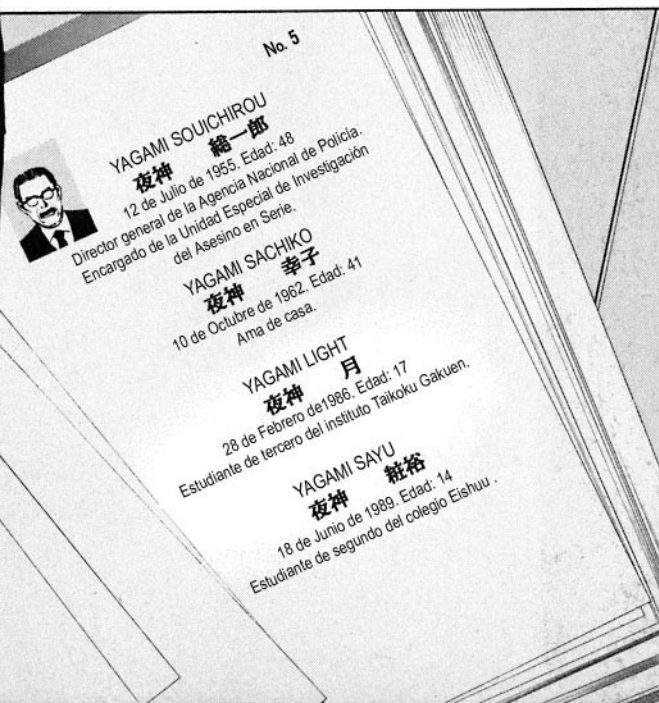 No. 5
YAGAMI SOUICHIROU
夜神 総一郎
12 de Julio de 1955. Edad: 48
Director general de la Agencia Nacional de Policía.
Encargado de la Unidad Especial de Investigación
del Asesino en Serie.
YAGAMI SACHIKO
夜神 幸子
10 de Octubre de 1962. Edad: 41
Ama de casa.
YAGAMI LIGHT
夜神 月
28 de Febrero de1986. Edad: 17
Estudiante de tercero del instituto Taikoku Gakuen.
YAGAMI SAYU
夜神 粧裕
18 de Junio de 1989. Edad: 14
Estudiante de segundo del colegio Eishuu .